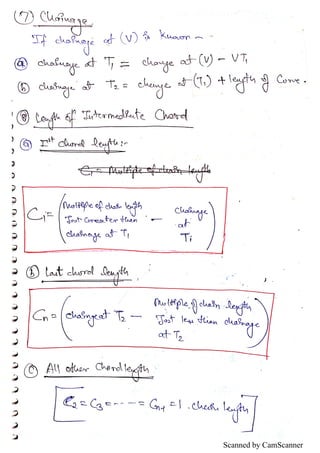 (7) Chainage
If chainage at (V) is known —
(a) chainage at T1 = chainage at (V) - VT1
(b) chainage at T2 = chainage at (T1) + length of Curve.
(8) Length of Intermediate Chord
(a) Ist chord length:-
C1 = Multiple of chain length
C1 = (Multiple of chain length Just Greater than chainage at T1 - chainage at T1
(b) Last chord length
Cn = (chainage at T2 - Multiple of chain length Just less than chainage at T2)
(c) All other Chord length
C2 = C3 = - - - - = Cn-1 = 1 . chain length
Scanned by CamScanner